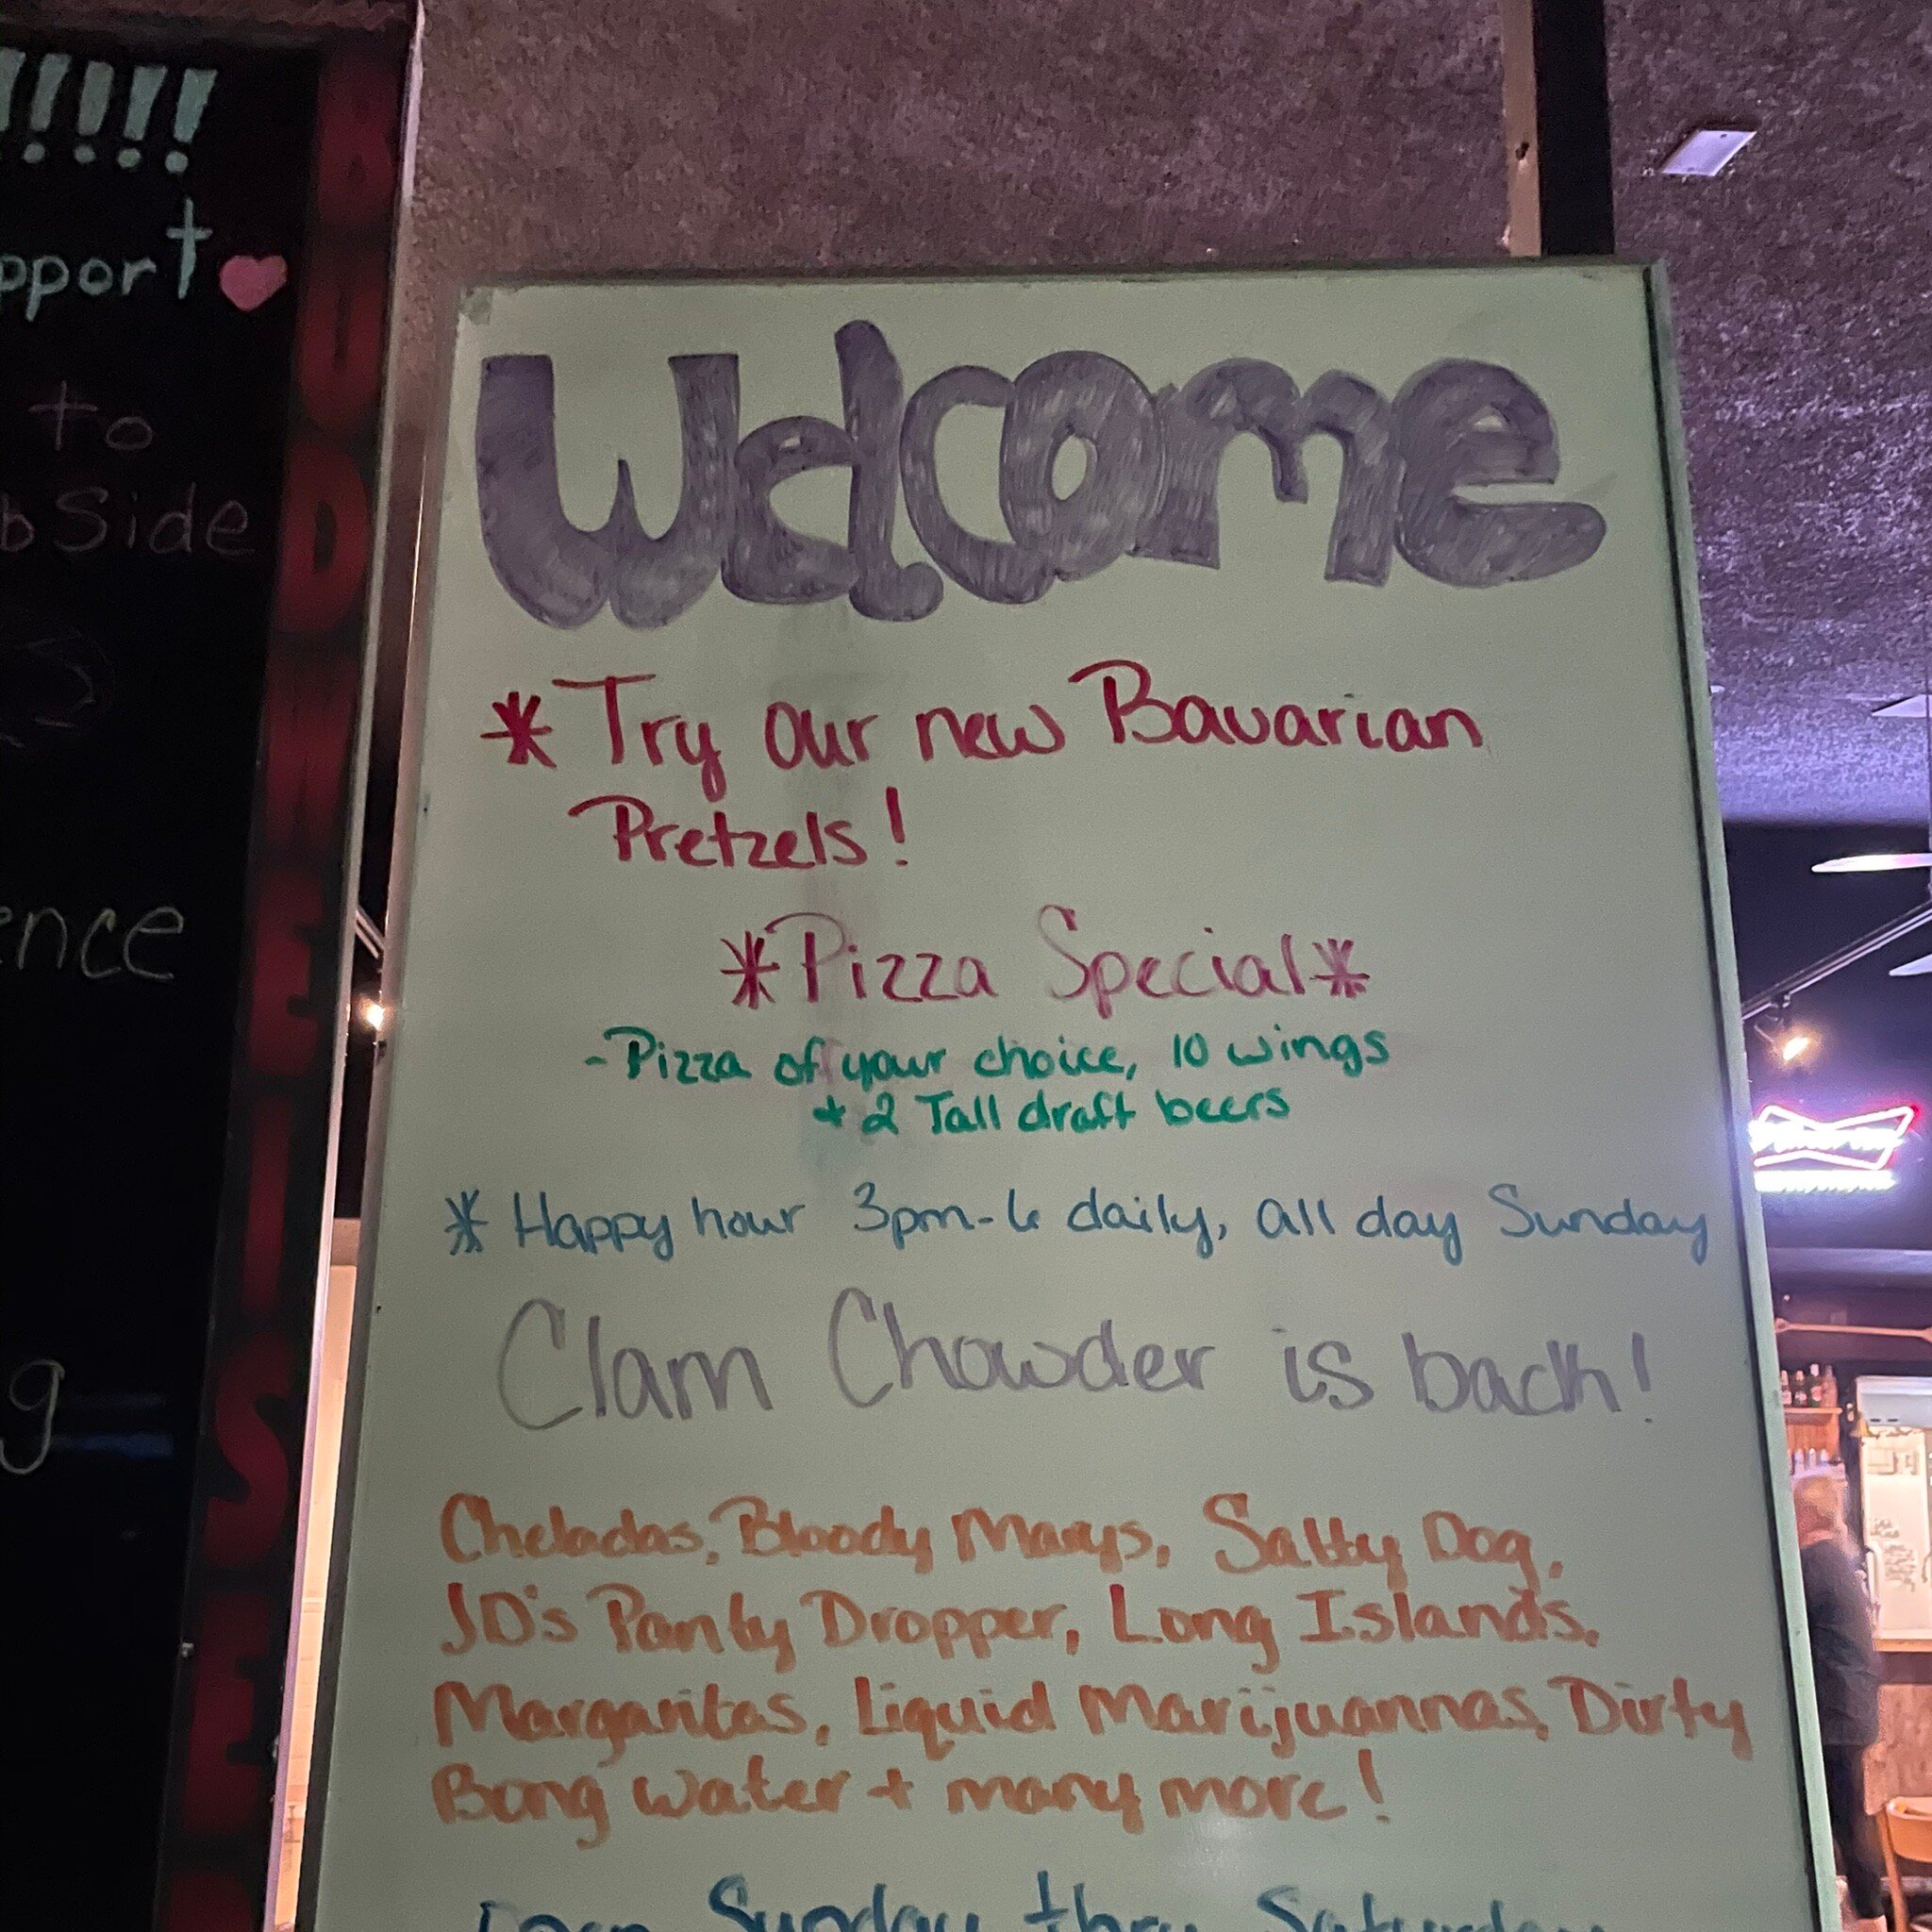 !!!!!
pport
to
bSide
ence
g
BUDWEISER
Welcome
*Try our new Bavarian
Pretzels!
*Pizza Special*
-Pizza of your choice, 10 wings
+ 2 Tall draft beers
* Happy hour 3pm-6 daily, all day Sunday
Clam Chowder is back!
Cheladas, Bloody Marys, Salty Dog,
JD's Panty Dropper, Long Islands,
Margaritas, Liquid Marijuannas, Dirty
Bong Water + many more!
Open Sunday thru Saturday